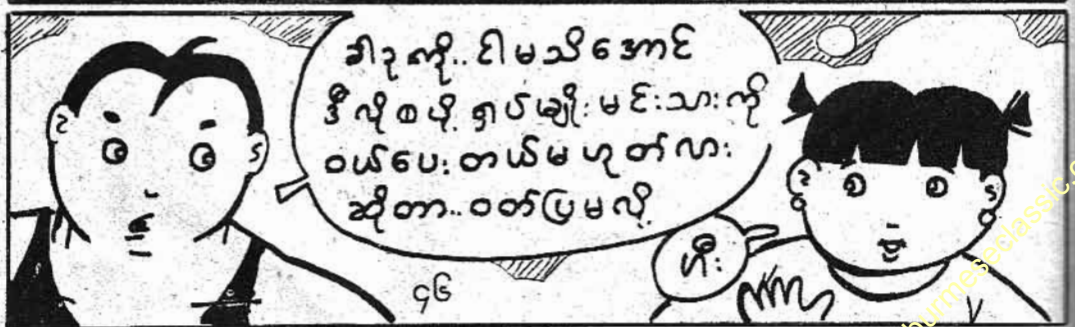 ဒါဒုကို..ငါမသိအောင်
ဒီလိုစပို့ရှပ်မျိုးမင်းသားကို
ဝယ်ပေးတယ်မဟုတ်လား
ဆိုတာ..ဝတ်ပြမလို့
ဟီး
၄၆
burmeseclassic.c